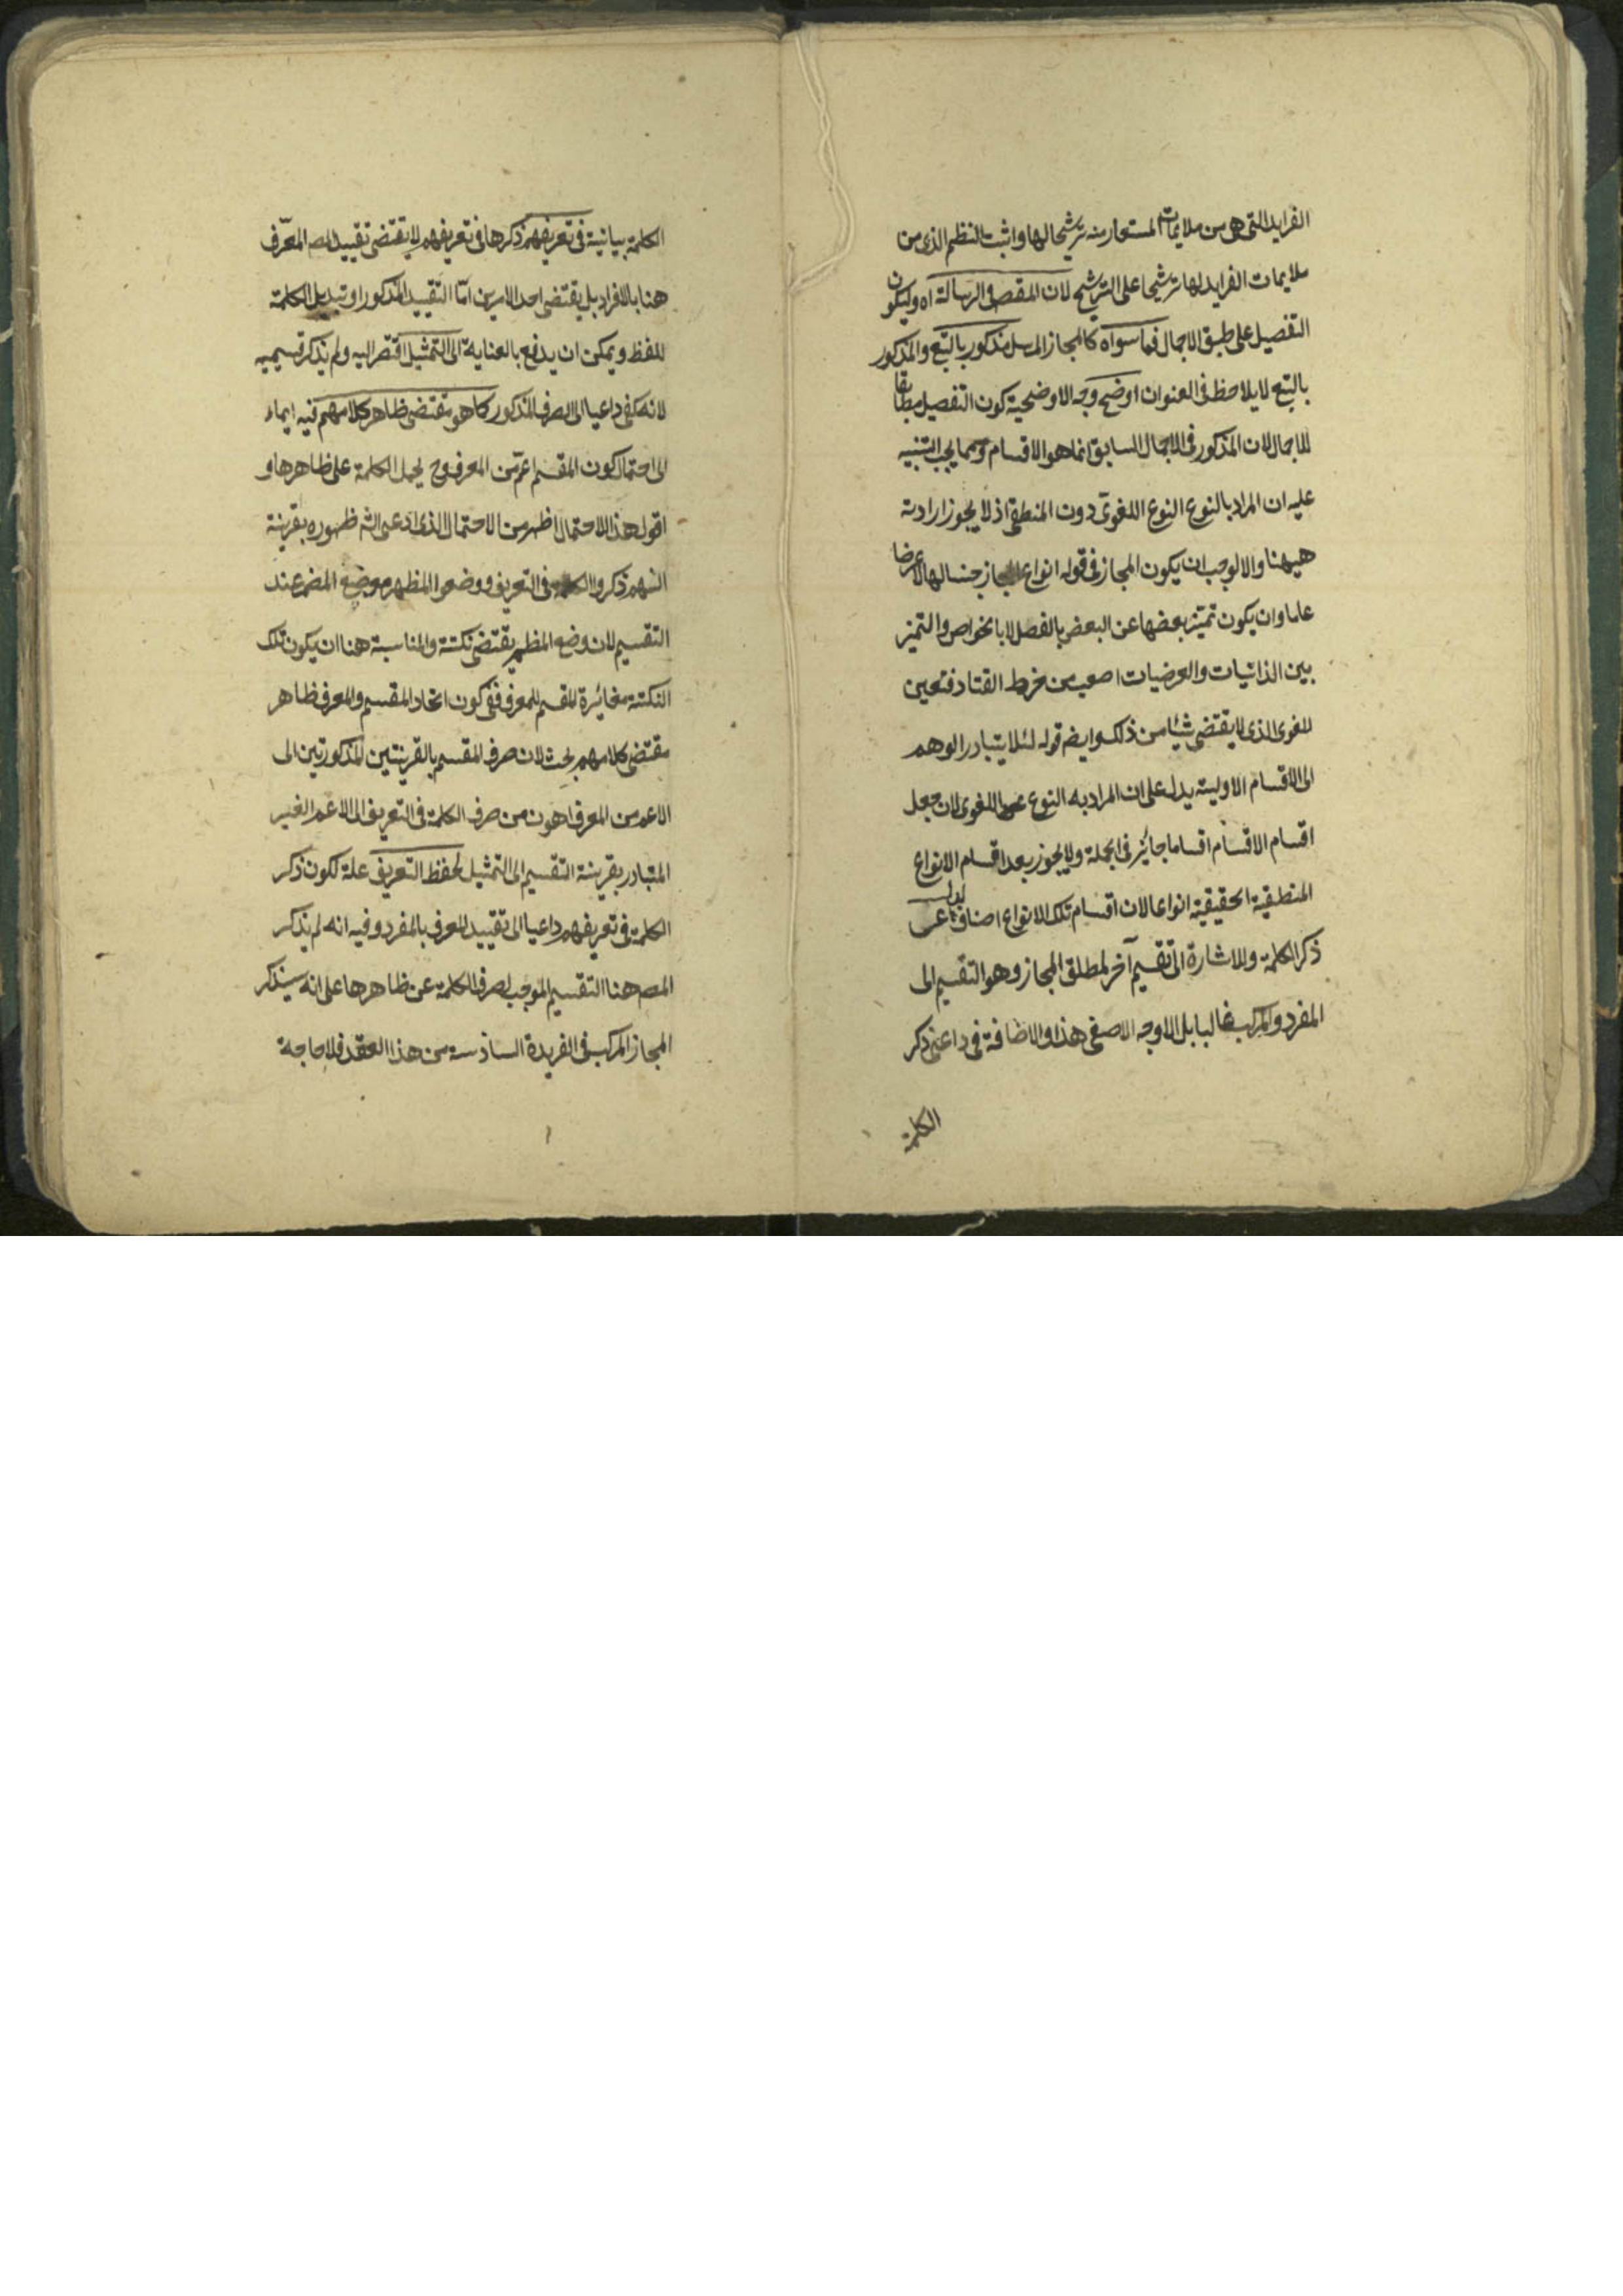 الفرايد التى هى من ملايمات المستعار منه ترشيحا لها واثبت النظم الذى من
ملايمات الفرايد لها ترشيحا على الترشيح لان المقص فى الرسالة اه وليكون
التفصيل على طبق الاجمال فما سواه كالمجاز المرسل مذكور بالتبع والمذكور
بالتبع لا يلاحظ فى العنوان اوضح وجه الاوضحية كون التفصيل مطابقا
للاجمال لان المذكور فى الاجمال السابق انما هو الاقسام ومما يجب التنبيه
عليه ان المراد بالنوع النوع اللغوى دون المنطقى اذ لا يجوز ارادته
هيهنا والا لوجب ان يكون المجاز فى قوله انواع المجاز جنسا لها لا عرضا
عاما وان يكون تميز بعضها عن البعض بالفصل لا بالخواص والتميز
بين الذاتيات والعرضيات اصعب من خرط القتاد فتعين
اللغوى الذى لا يقتضى شيئا من ذلك وايضا قوله لئلا يتبادر الوهم
الى الاقسام الاولية يدل على ان المراد به النوع اللغوى لان جعل
اقسام الاقسام اقساما جائز فى الجملة ولا يجوز بعد اقسام الانواع
المنطقية الحقيقية انواعا لان اقسام تلك الانواع اصناف
ذكر الكلمة وللاشارة الى تقسيم آخر لمطلق المجاز وهو التقسيم الى
المفرد والمركب غالبا بل الاوجه الاصفى هذا والاضافة فى داعنى ذكر
الكلمة
الكلمة بيانية فى تعريفهم ذكرها فى تعريفهم لا يقتضى تقييد المص المعرّف
هنا بالافراد بل يقتضى احد الامرين امّا التقييد المذكور او تبديل الكلمة
للفظ ويمكن ان يدفع بالعناية الى التمثيل اقتصر اليه ولم يذكر قسيميه
لانه كفى داعيا الى الصرف المذكور كما هو مقتضى ظاهر كلامهم فيه ايماء
الى احتمال كون المقسم اعمّ من المعرف وح يحمل الكلمة على ظاهرها و
اقول هذا الاحتمال اظهر من الاحتمال الذى ادعى الشه ظهوره بقرينة
انهم ذكروا الكلمة فى التعريف ووضعوا المظهر موضع المضمر عند
التقسيم لان وضع المظهر يقتضى نكتة والمناسبة هنا ان يكون تلك
النكتة مغائرة المقسم للمعرف ففى كون اتحاد المقسم والمعرف ظاهر
مقتضى كلامهم بحث لان صرف المقسم بالقرينتين المذكورتين الى
الاعم من المعرف اهون من صرف الكلمة فى التعريف الى الاعم الغير
المتبادر بقرينة التقسيم الى التمثيل لحفظ التعريف علة لكون ذكر
الكلمة فى تعريفهم داعيا الى تقييد المعرف بالمفرد وفيه انه لم يذكر
المص هنا التقسيم الموجب لصرف الكلمة عن ظاهرها على انه سيذكر
المجاز المركب فى الفريدة السادسة من هذا العقد فلا حاجة